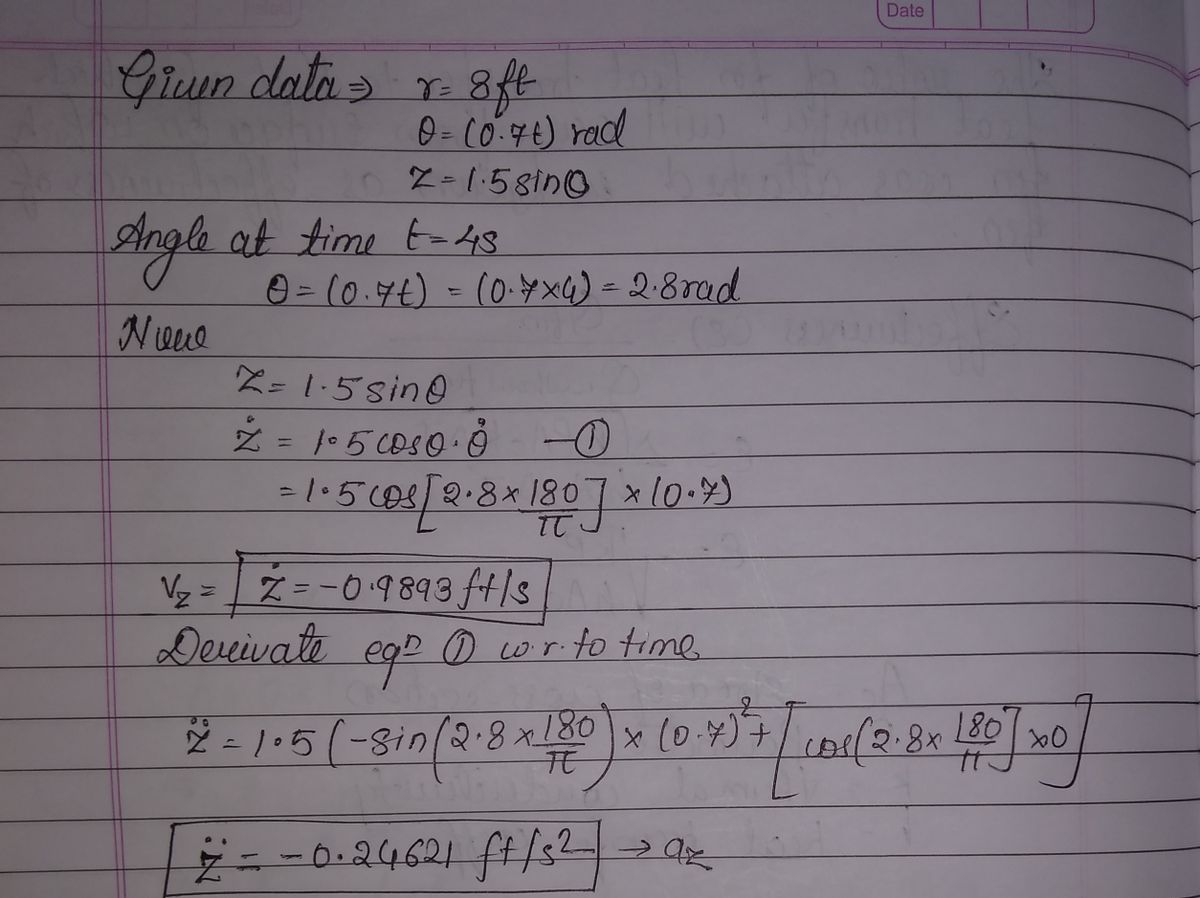 Date
Given data ⇒ r = 8 ft
θ = (0.7t) rad
Z = 1.5 sinθ
Angle at time t = 4s
θ = (0.7t) = (0.7×4) = 2.8 rad
Z = 1.5 sinθ
ż = 1.5 cosθ·θ̇ —①
= 1.5 cos[2.8 × 180/π] × (0.7)
V_z = ż = -0.9893 ft/s
Derivate eqn ① w.r.to time
z̈ = 1.5 (-sin(2.8 × 180/π) × (0.7)² + [cos(2.8 × 180/π] ×0]
z̈ = -0.24621 ft/s² → a_z